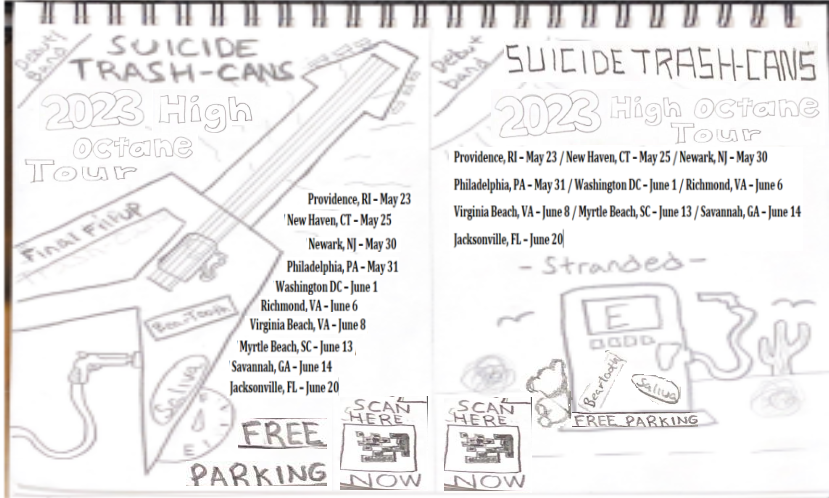 Debut
Band
SUICIDE
TRASH-CANS
2023 High
Octane
Tour
Providence, RI – May 23
New Haven, CT – May 25
Newark, NJ – May 30
Philadelphia, PA – May 31
Washington DC – June 1
Richmond, VA – June 6
Virginia Beach, VA – June 8
Myrtle Beach, SC – June 13
Savannah, GA – June 14
Jacksonville, FL – June 20
Final FillUP
BearTooth
Saliva
E
FREE
PARKING
SCAN
HERE
NOW
Debut
band
SUICIDE TRASH-CANS
2023 High Octane
Tour
Providence, RI – May 23 / New Haven, CT – May 25 / Newark, NJ – May 30
Philadelphia, PA – May 31 / Washington DC – June 1 / Richmond, VA – June 6
Virginia Beach, VA – June 8 / Myrtle Beach, SC – June 13 / Savannah, GA – June 14
Jacksonville, FL – June 20
- Stranded -
E
Beartooth
Saliva
FREE PARKING
SCAN
HERE
NOW